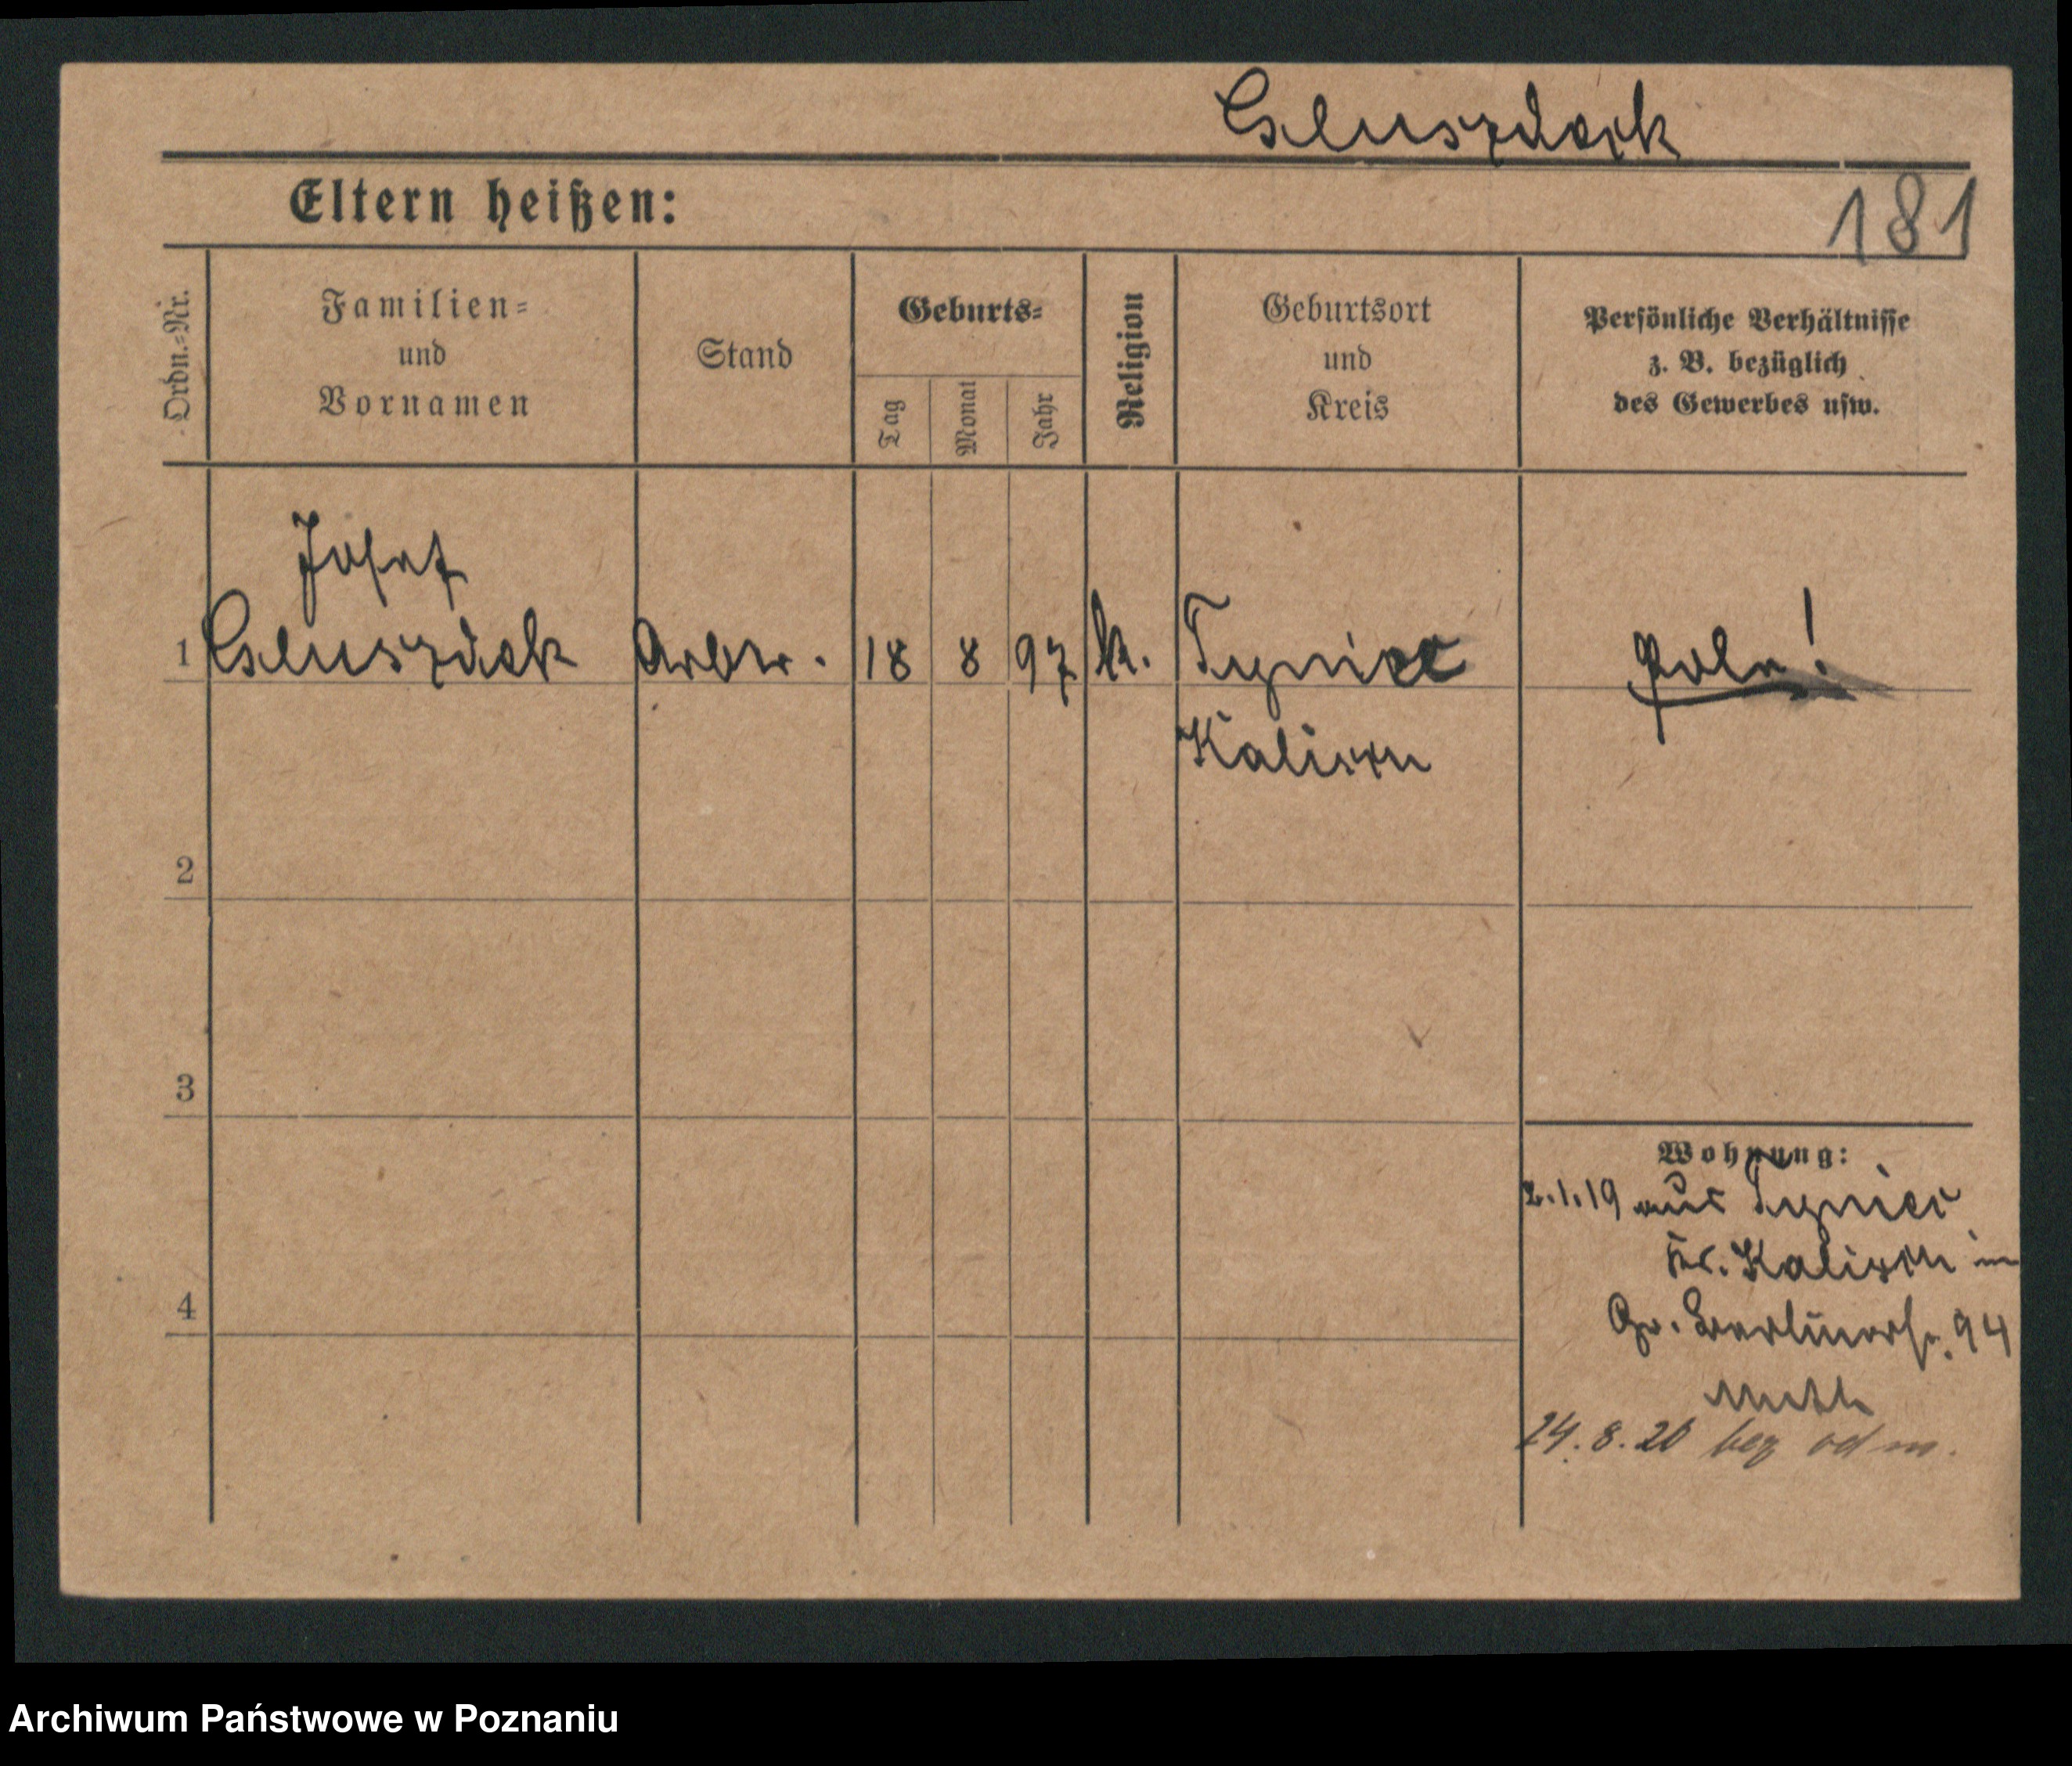 Gluszdack
Eltern heißen:
181
Ordn.-Nr.
Familien-
und
Vornamen
Stand
Geburts-
Tag
Monat
Jahr
Religion
Geburtsort
und
Kreis
Persönliche Verhältnisse
z. B. bezüglich
des Gewerbes usw.
Josef
1 Gluszdak Arbtr. 18 8 97 k. Tyniec Poln!
Kalisch
2
3
4
Wohnung:
2.1.19 aus Tyniec
Kr. Kalisch in
Gr. Berlinerstr. 94
24.8.20 bez odm.
Archiwum Państwowe w Poznaniu